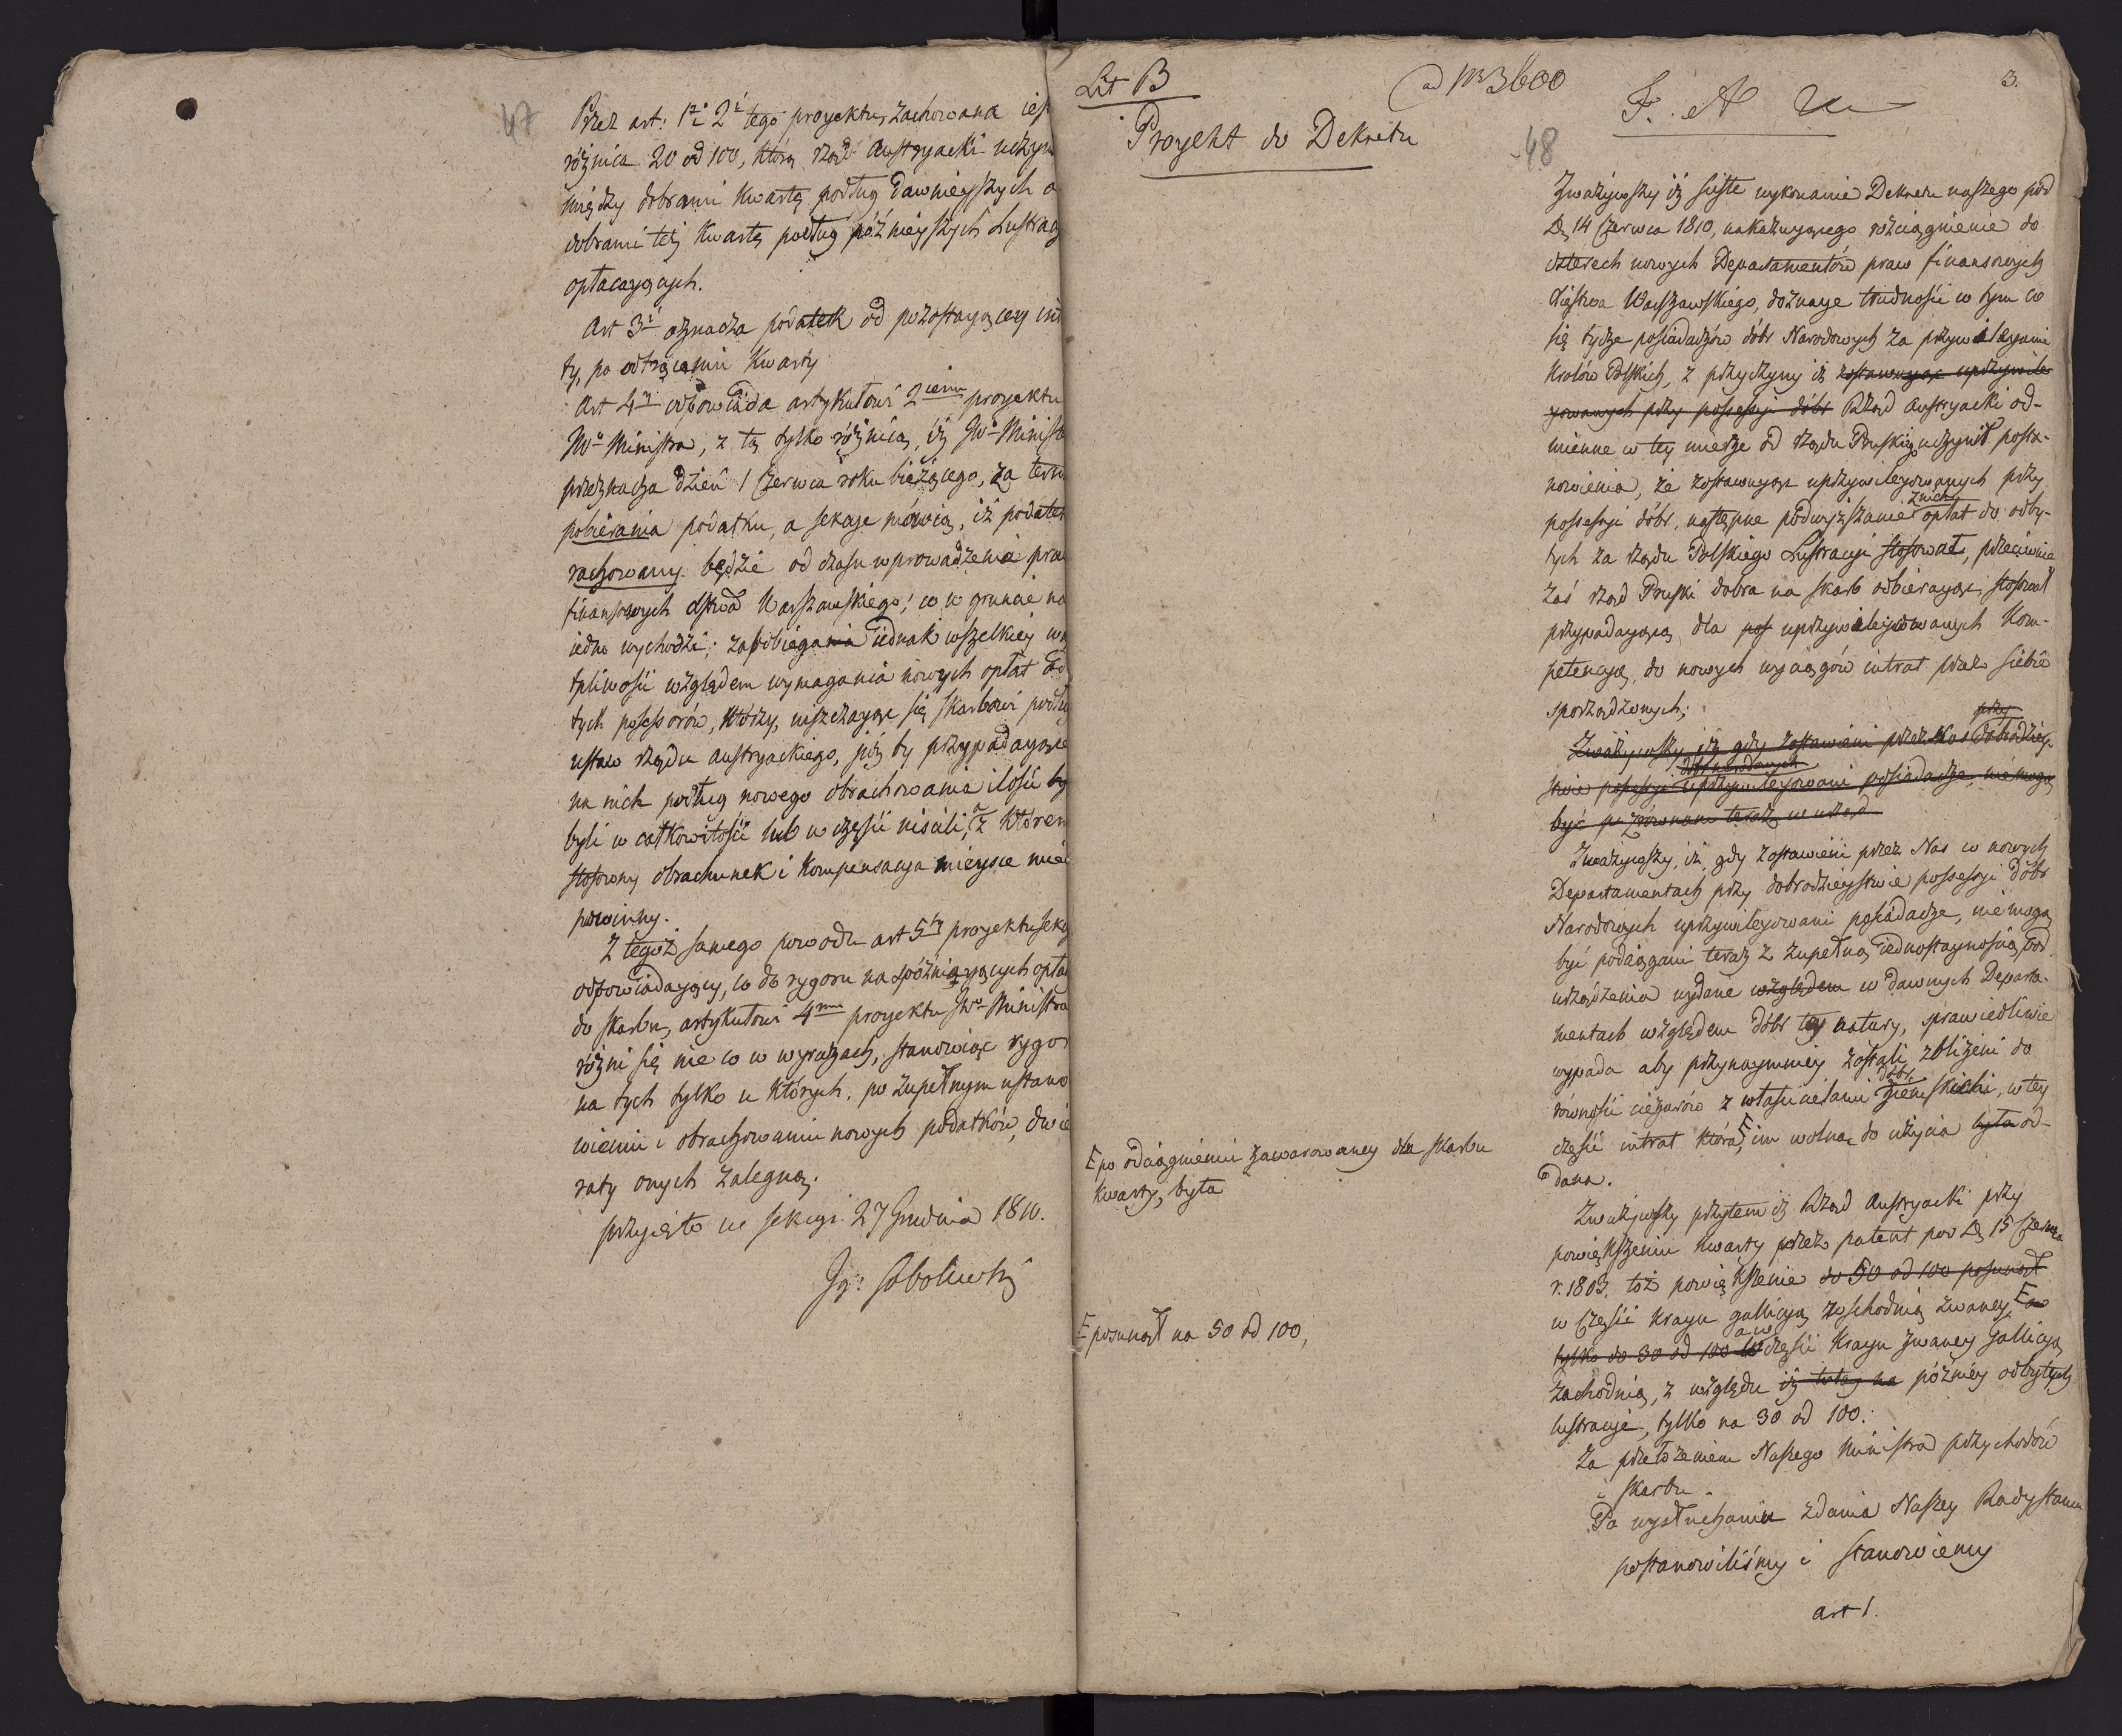 47
Przez art: 1i 2i tego proyektu, zachowana iest
różnica 20 od 100, którą rząd Austryacki uczyn
między dobrami kwartę podług dawnieyszych a
dobrami tęż kwartę podług późnieyszych Lustracy
opłacaiących.
Art 3i oznacza podatek od pozostaiącey int
ty, po odtrąceniu kwarty
Art 4y odpowiada artykułowi 2iemu proyektu
JWo Ministra, z tą tylko różnicą, iż JWo Minist
przeznacza dzień 1 Czerwca roku bieżącego, za term
pobierania podatku, a sekcye mówią, iż podatek
rachowany będzie od czasu wprowadzenia praw
finansowych Xstwa Warszawskiego; co w gruncie na
iedno wychodzi; zapobiegania iednak wszelkiey wą
tpliwości względem wymagania nowych opłat od
tych possessorów, którzy, uiszczaiąc się skarbowi podług
ustaw rządu austryackiego, iużby przypadaiące
na nich podług nowego obrachowania ilości by
byli w całkowitości lub w części uiścili, z którem
stosowny obrachunek i kompensacya mieysce mieć
powinny.
Z tegoż samego powodu art 5ty proyektu sekcy
odpowiadaiący, co do rygoru na spóźniaiących opłat
do skarbu, artykułowi 4mu proyektu JWo Ministra
różni się nieco w wyrazach, stanowiąc rygor
na tych tylko u których, po zupełnym ustano
wieniu i obrachowaniu nowych podatków, dwie
raty onych zalegną.
przyięto w sekcyi 27 Grudnia 1810.
Ig: Sobolewski
Lit B
ad Nr 3600
3.
Proyekt do Dekretu
F. A
48
Zważywszy iż ściste wykonanie Dekretu naszego pod
D. 14 Czerwca 1810, nakazuiącego rozciągnienie do
czterech nowych Departamentów praw finansowych
Xięstwa Warszawskiego, doznaie trudności w tym co
się tycze posiadaczów dóbr Narodowych za przywileiami
Królów Polskich, z przyczyny iż zostawuiąc uprzywile
jowanych przy possessyi dóbr Rząd Austryacki od-
mienne w tey mierze od rządu Pruskiego uczynił posta-
nowienia, że zostawuiąc uprzywileiowanych przy
possessyi dóbr, następne podwyższanie z nich opłat do odby-
tych za rządu Polskiego Lustracyi stosował, przeciwnie
zaś rząd Pruski dobra na skarb odbieraiąc stosował
przypadaiącą dla pos uprzywileiowanych kom-
petencyą, do nowych wyciągów intrat przez siebie
sporządzonych;
Zważywszy, iż gdy zostawieni przez Nas przy dobrodziey-
stwie possessyi dóbr narodowych uprzywileiowani posiadacze, nie mogą
być porównani teraz
Zważywszy, iż gdy zostawieni przez Nas w nowych
Departamentach przy dobrodzieystwie possessyi dóbr
Narodowych uprzywileiowani posiadacze, nie mogą
być podciągani teraz z zupełną iednostaynością pod
urządzenia wydane względem w dawnych Departa-
mentach względem dóbr tey natury, sprawiedliwie
wypada aby przynaymniey zostali zbliżeni do
równości ciężarów z właścicielami dóbr ziemskich, w tey
części intrat która im wolna do użycia była od-
dana.
po odciągnieniu zawarowaney dla Skarbu
kwarty, była
Zważywszy przytem iż Rząd Austryacki przy
powiększeniu kwarty przez patent pod D. 15 Czerwca
r. 1803. toż powiększenie do 50 od 100 posunął
w części kraju gallicyą wschodnią zwaney, a
posunął na 50 od 100,
tylko do 30 od 100 w a w części Kraju zwaney Gallicyą
zachodnią, z względu iż tutay na późniey odbytych
lustracyi, tylko na 30 od 100.
Za przełożeniem Naszego Ministra przychodów
i skarbu.
Po wysłuchaniu zdania Naszey Rady Stanu
postanowiliśmy i stanowiemy
art 1.